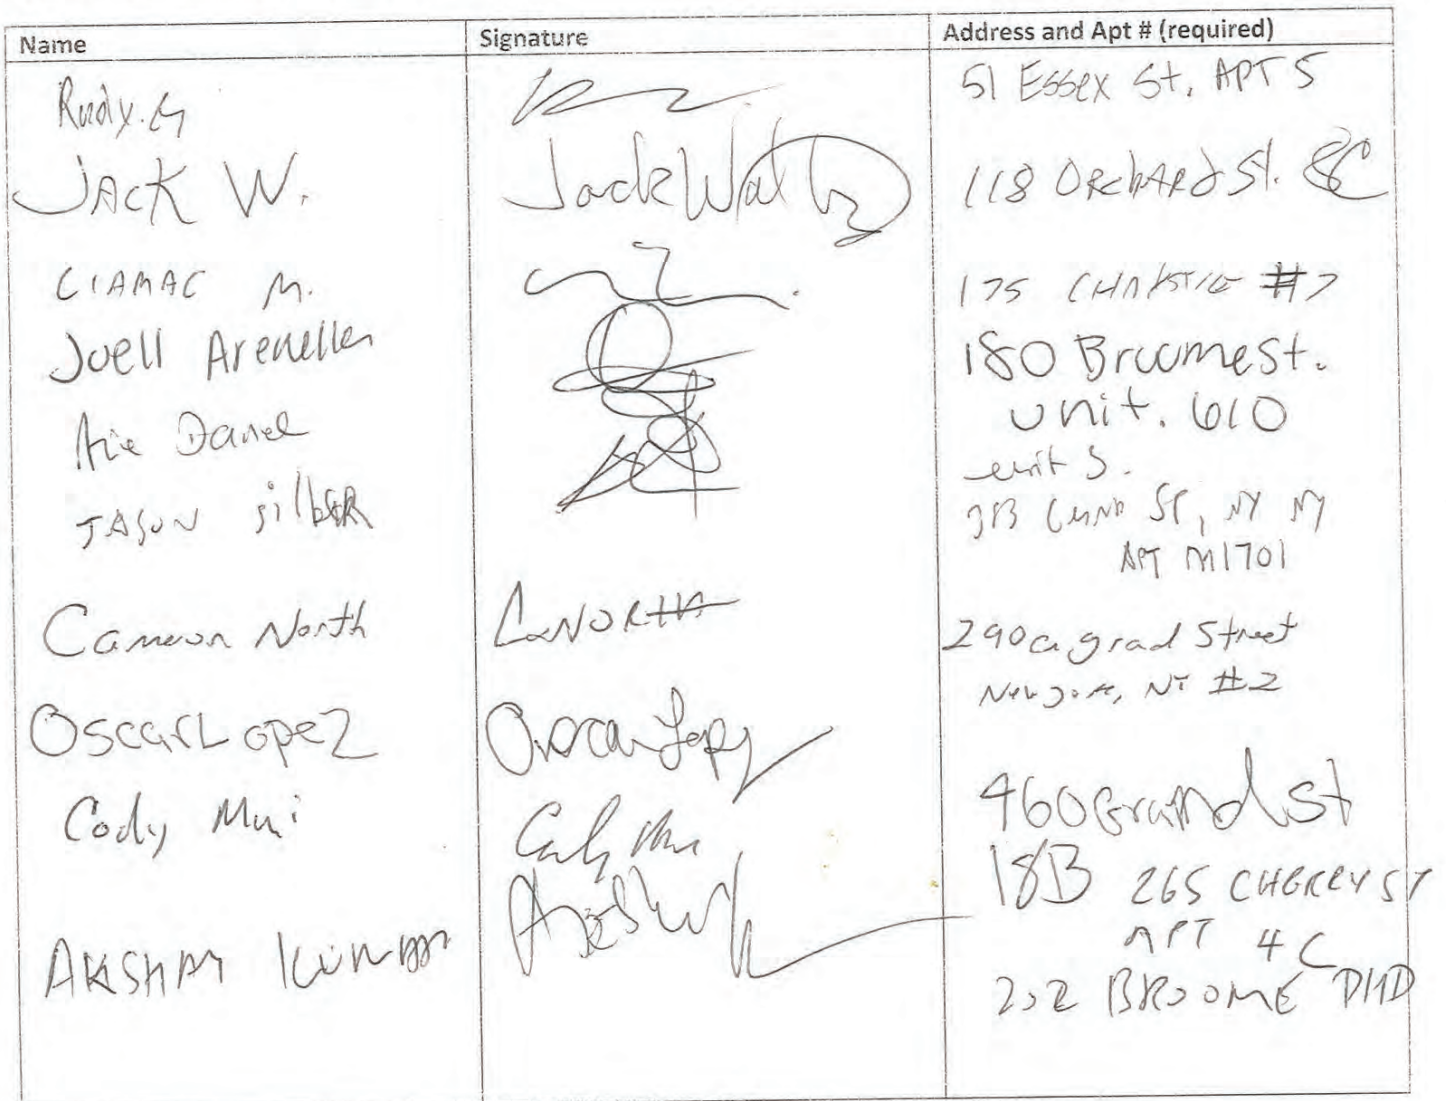 Name Signature Address and Apt # (required)
Rudy.G 51 Essex St. APT 5
JACK W. Jack Waltz 118 ORchARd St. 8C
CIAMAC M. 175 #7
Joell 180 Broome St.
unit. 610
Danel unit 5.
JASON silbER St, NY NY
APT M1701
Cameron North C NORTH 290 a grad Street
New York, NY #2
Oscar Lopez Oscar Lopez 460 Grand st
Cody Cody 18B 265 CHERRY ST
APT 4C
AKSHAY KUMAR 202 BROOME